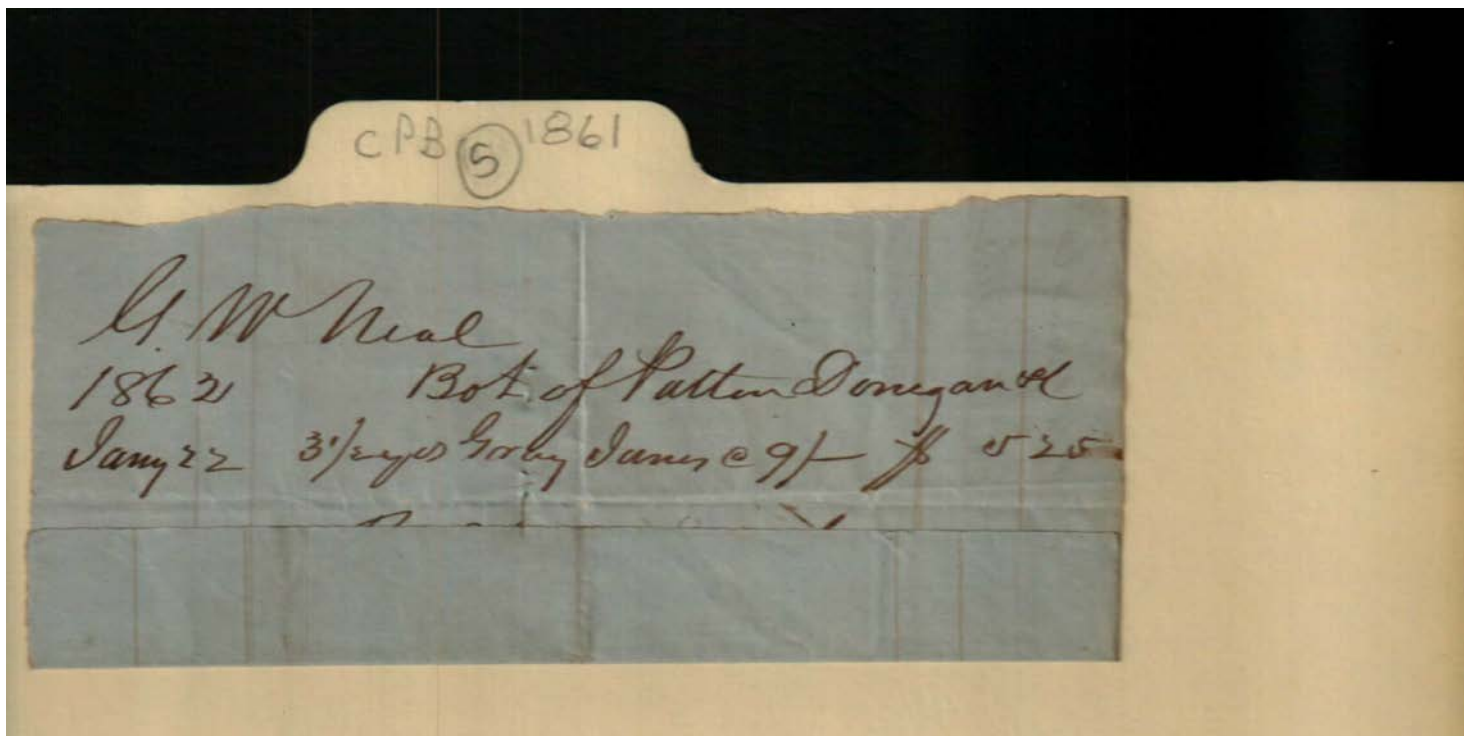 CPB 5 1861
G. W Neal
1862 Bot. of Patton Donegan &Co
Jany 22 3 1/2 yds Gray Janes @ 9/- $ 5 25